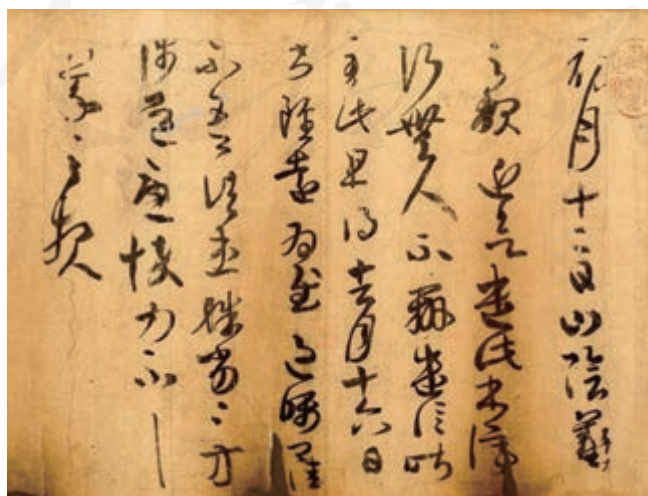 初月十二日山陰羲
之報近欲遣此書停
行無人不辦遣信昨
至此且得去月十六日
書雖遠為慰過囑卿佳
不吾諸患殊劣〻方
涉道憂悴力不一一
羲之報